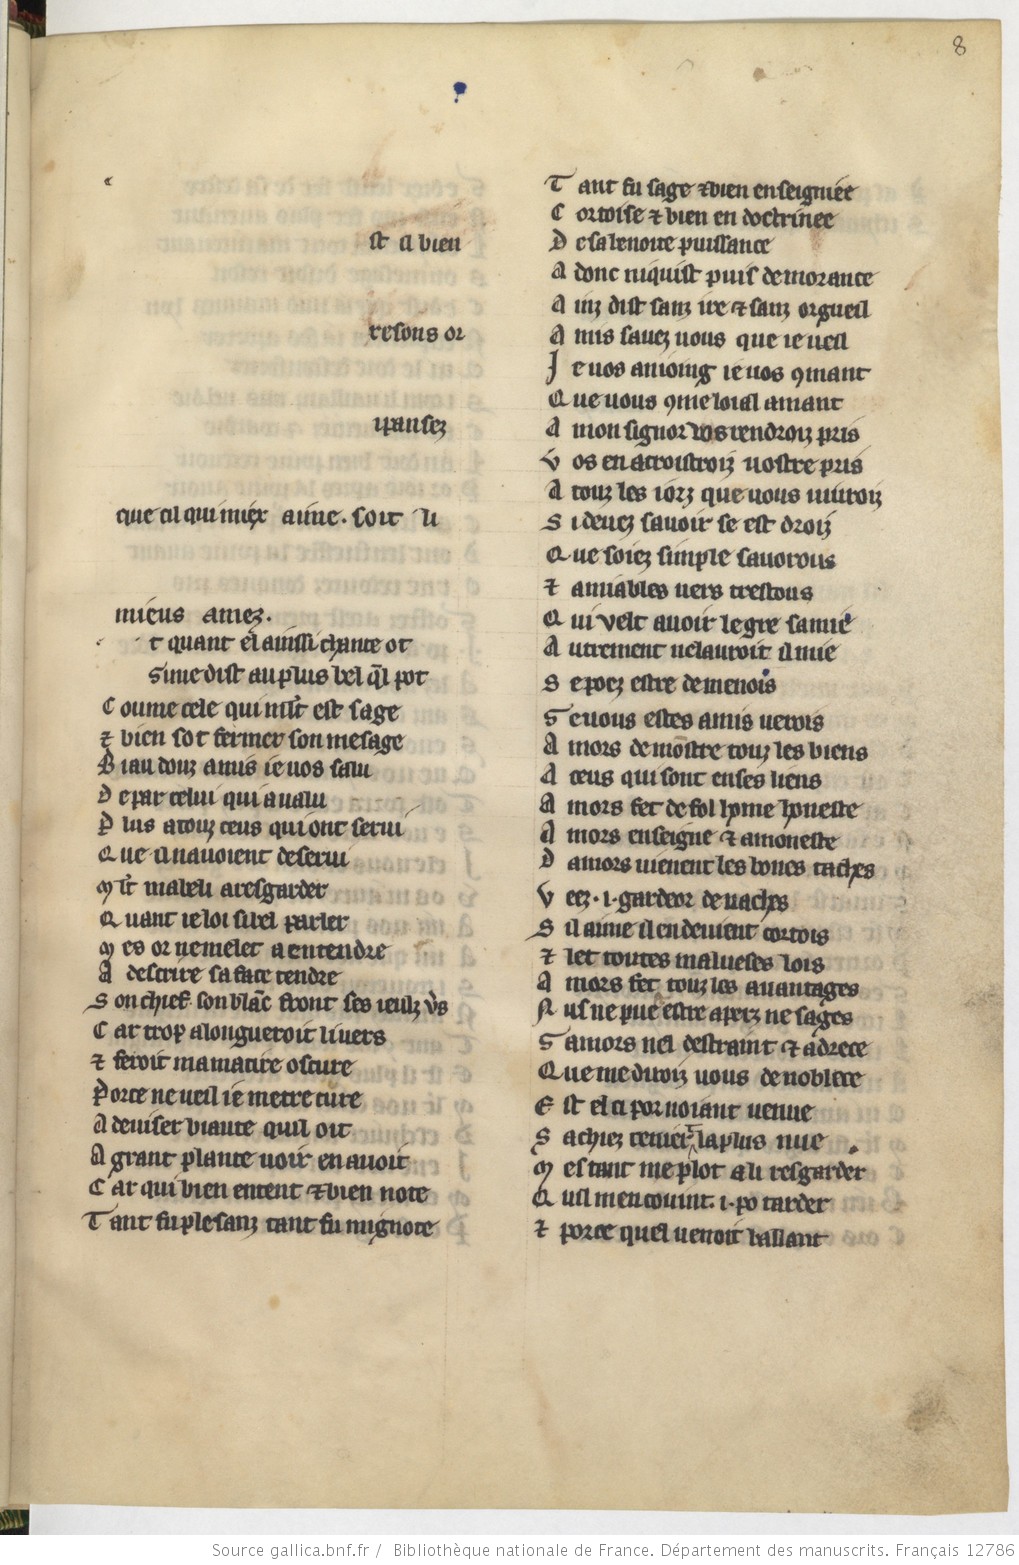 8
st cil bien
resons or
ipansez
que cil qui miex aime. soit li
mieus amez.
t quant el aūssi chante ot
Si me dist au plus bel q̄l pot
Coume cele qui ml̄t est sage
⁊ bien sot fermer son mesage
Biau douz amis ie uos salu
De par celui qui a ualu
Plus a touz ceus qui ont serui
Que il nauoient deserui
Ml̄t mabeli a resgarder
Quant ie loi si bel parler
Mes or ne melet a entendre
A descrire sa face tendre
Son chief son blāc front ses ieulz v̄s
Car trop alongueroit li uers
⁊ feroit ma matire oscure
Por ce ne ueil ie metre cure
A deuiser biaute quil oit
A grant plante uoir en auoit
Car qui bien entent ⁊ bien note
Tant fu plesanz tant fu mignote
Tant fu sage ⁊ bien enseigniee
Cortoise ⁊ bien en doctrinee
De sa lenoite puissance
Adonc ni quist puis demorance
Ainz dist sanz ire ⁊ sanz orgueil
Amis sauez uous que ie ueil
Ie uos anioing ie uos ꝯmant
Que uous ꝯme loial amant
A mon signor uos rendroiz pris
Vos en acroistroiz uostre pris
A touz les iorz que uous uiuroiz
Si deuez sauoir se est droiz
Que soiez simple sauorous
⁊ amiables uers trestous
Qui velt auoir le gre samie
Autrement ne lauroit il mie
Se poez estre de me nois
Se uous estes amis uerois
Amors demōstre touz les biens
A ceus qui sont en ses liens
Amors fet de fol home honeste
Amors enseigne ⁊ amoneste
Damors uienent les bones taches
Veez .i. gardeor de uaches
Sil aime il en deuient cortois
⁊ let toutes malueses lois
Amors fet touz les auantages
Nus ne puet estre aperz ne sages
Samors nel destraint ⁊ adrece
Que me diroiz uous de noblece
Est el ci por noiant uenue
Sachiez tenier la plus nue
Mes tant me plot a li resgarder
Quil men couint .i. po tarder
⁊ por ce quel uenoit ballant
Source gallica.bnf.fr / Bibliothèque nationale de France. Département des manuscrits. Français 12786